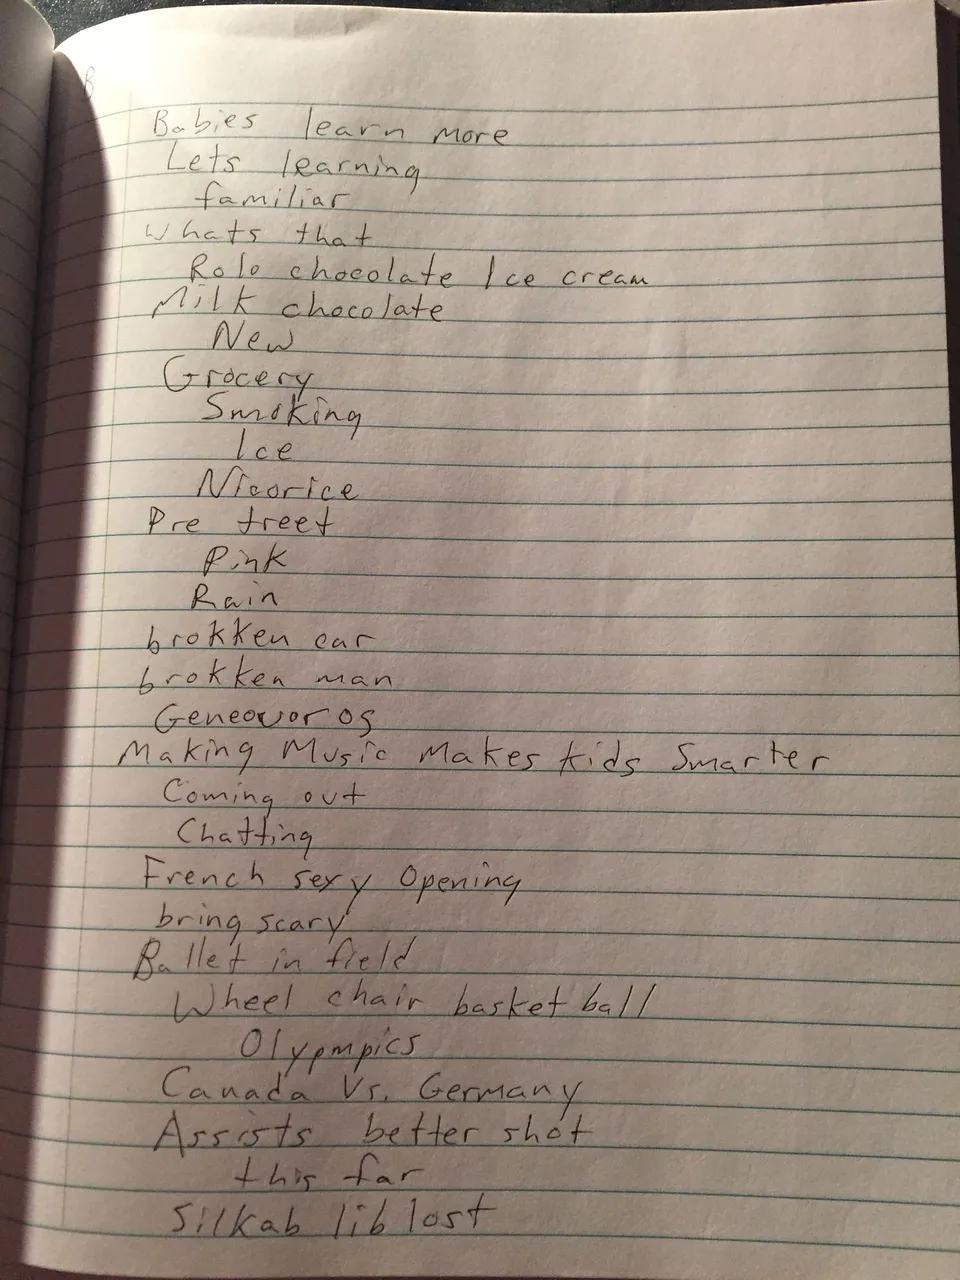 B
Babies learn more
Lets learning
familiar
Whats that
Rolo chocolate Ice cream
Milk chocolate
New
Grocery
Smoking
Ice
Nicorice
Pre treet
Pink
Rain
brokken car
brokken man
Making Music Makes kids Smarter
Coming out
Chatting
French sexy Opening
bring scary
Ballet in field
Wheel chair basket ball
Olypmpics
Canada Vs. Germany
Assists better shot
this far
Silkab lib lost